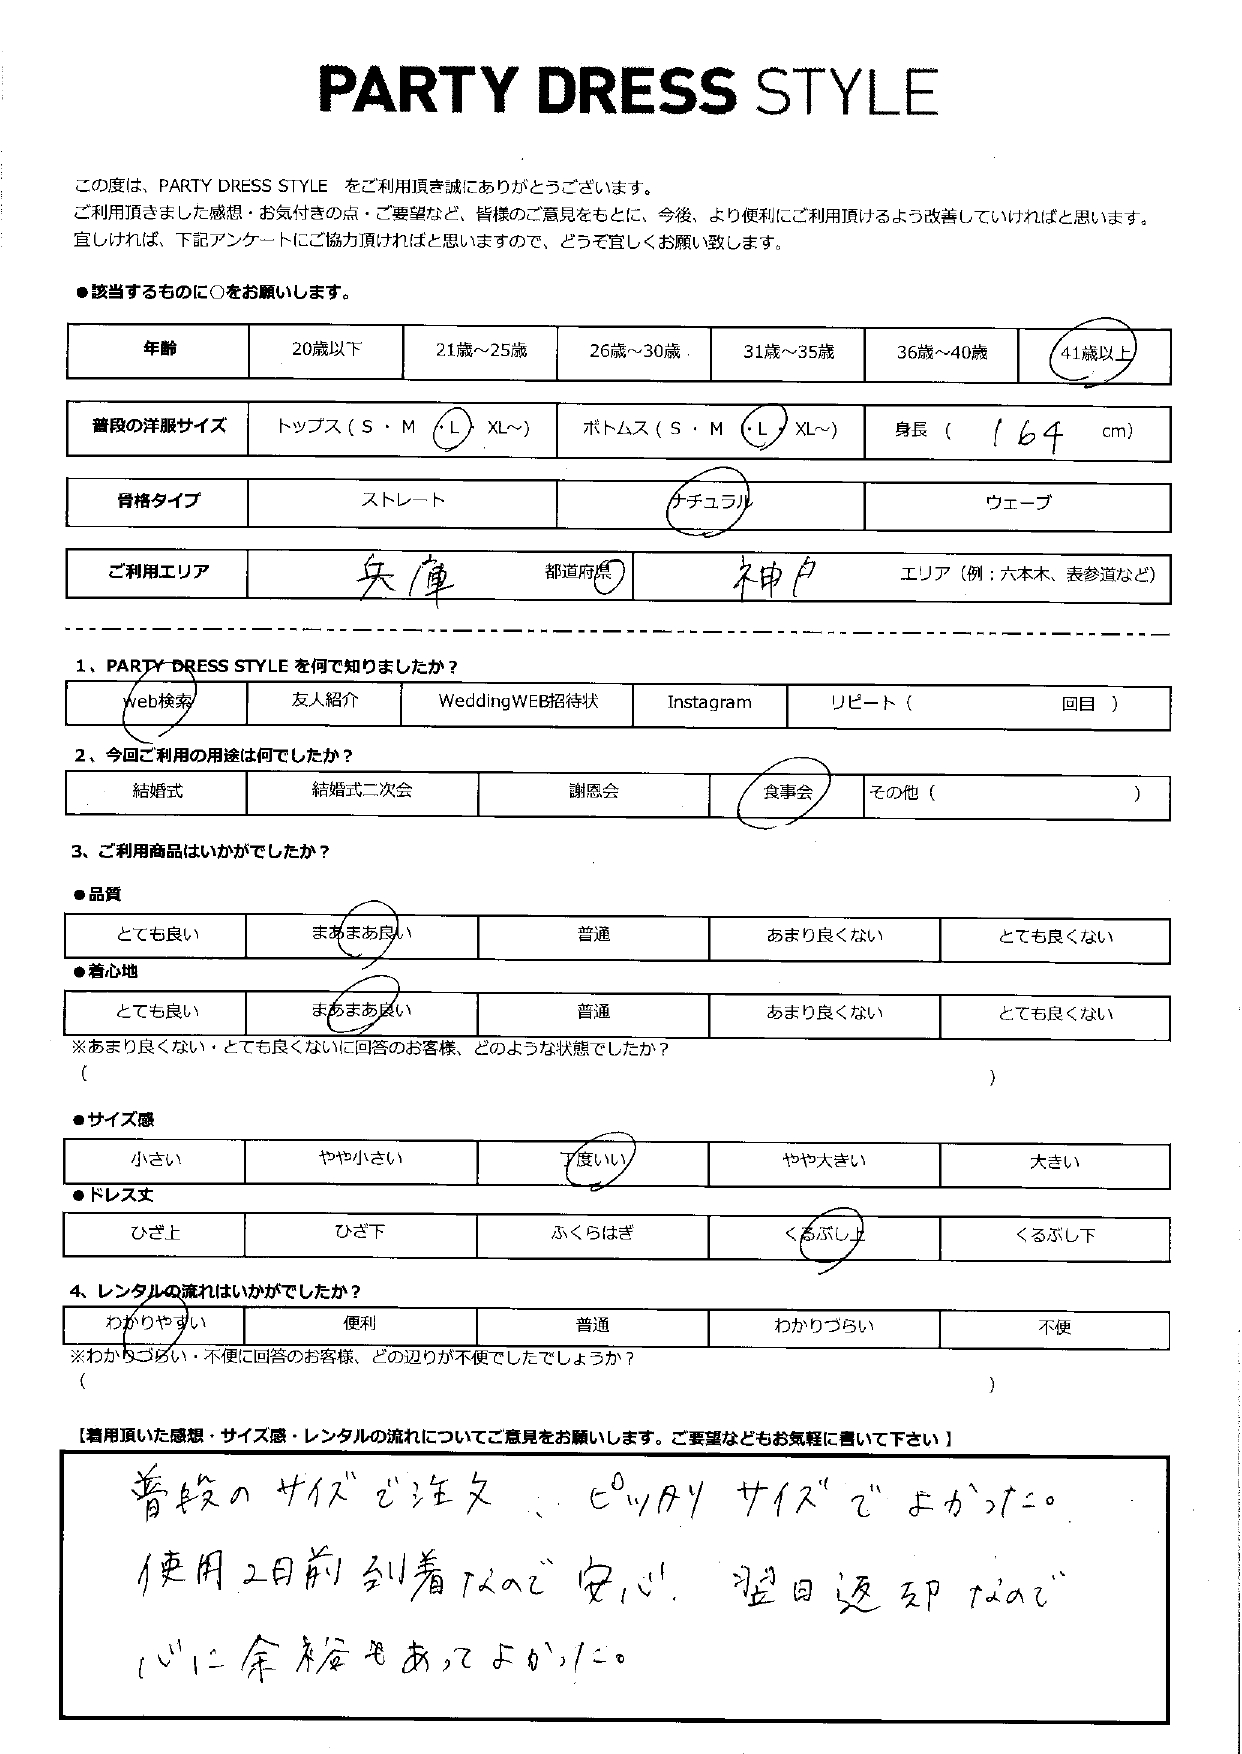 PARTY DRESS STYLE
この度は、PARTY DRESS STYLE をご利用頂き誠にありがとうございます。
ご利用頂きました感想・お気付きの点・ご要望など、皆様のご意見をもとに、今後、より便利にご利用頂けるよう改善していければと思います。
宜しければ、下記アンケートにご協力頂ければと思いますので、どうぞ宜しくお願い致します。
●該当するものに○をお願いします。
年齢 20歳以下 21歳～25歳 26歳～30歳 31歳～35歳 36歳～40歳 41歳以上
普段の洋服サイズ トップス ( S ・ M ・ L ・ XL～) ボトムス ( S ・ M ・ L ・ XL～) 身長 ( 164 cm)
骨格タイプ ストレート ナチュラル ウェーブ
ご利用エリア 兵庫 都道府県 神戸 エリア（例；六本木、表参道など）
1、PARTY DRESS STYLE を何で知りましたか？
web検索 友人紹介 WeddingWEB招待状 Instagram リピート（ 回目 ）
2、今回ご利用の用途は何でしたか？
結婚式 結婚式二次会 謝恩会 食事会 その他（ ）
3、ご利用商品はいかがでしたか？
●品質
とても良い まあまあ良い 普通 あまり良くない とても良くない
●着心地
とても良い まあまあ良い 普通 あまり良くない とても良くない
※あまり良くない・とても良くないに回答のお客様、どのような状態でしたか？
（ ）
●サイズ感
小さい やや小さい 丁度いい やや大きい 大きい
●ドレス丈
ひざ上 ひざ下 ふくらはぎ くるぶし上 くるぶし下
4、レンタルの流れはいかがでしたか？
わかりやすい 便利 普通 わかりづらい 不便
※わかりづらい・不便に回答のお客様、どの辺りが不便でしたでしょうか？
（ ）
【着用頂いた感想・サイズ感・レンタルの流れについてご意見をお願いします。ご要望などもお気軽に書いて下さい 】
普段のサイズで注文、ピッタリサイズでよかった。
使用2日前到着なので安心。翌日返却なので
心に余裕もあってよかった。